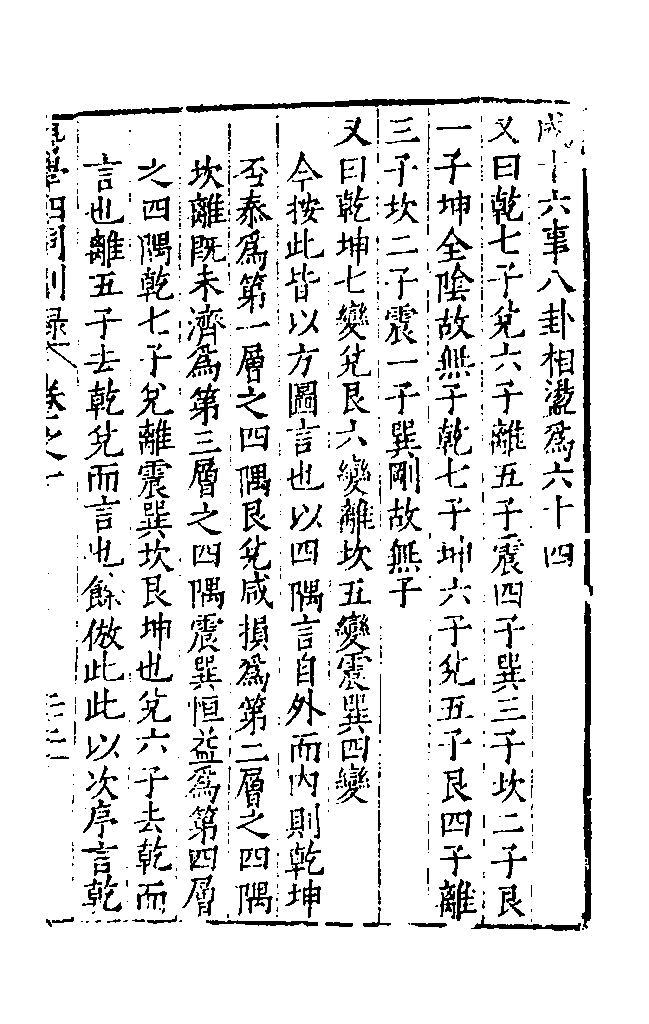 成十六事八卦相盪爲六十四
又曰乾七子兊六子離五子震四子巽三子坎二子艮
一子坤全陰故無子乾七子坤六子兊五子艮四子離
三子坎二子震一子巽剛故無子
又曰乾坤七變兊艮六變離坎五變震巽四變
今按此皆以方圖言也以四隅言自外而內則乾坤
否泰爲第一層之四隅艮兊咸損爲第二層之四隅
坎離既未濟爲第三層之四隅震巽恒益爲第四層
之四隅乾七子兊離震巽坎艮坤也兊六子去乾而
言也離五子去乾兊而言也餘倣此此以次序言乾
易學四同別錄 卷之一